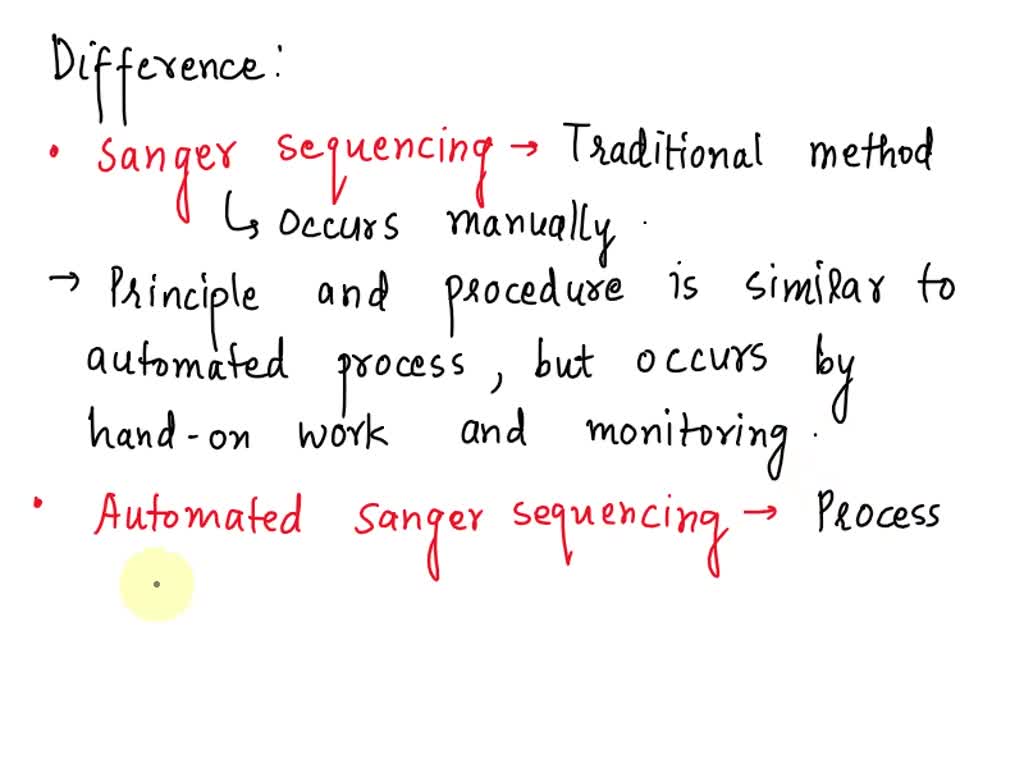 Difference:
• Sanger sequencing → Traditional method
↳ occurs manually.
→ Principle and procedure is similar to
automated process, but occurs by
hand-on work and monitoring.
• Automated Sanger sequencing → Process